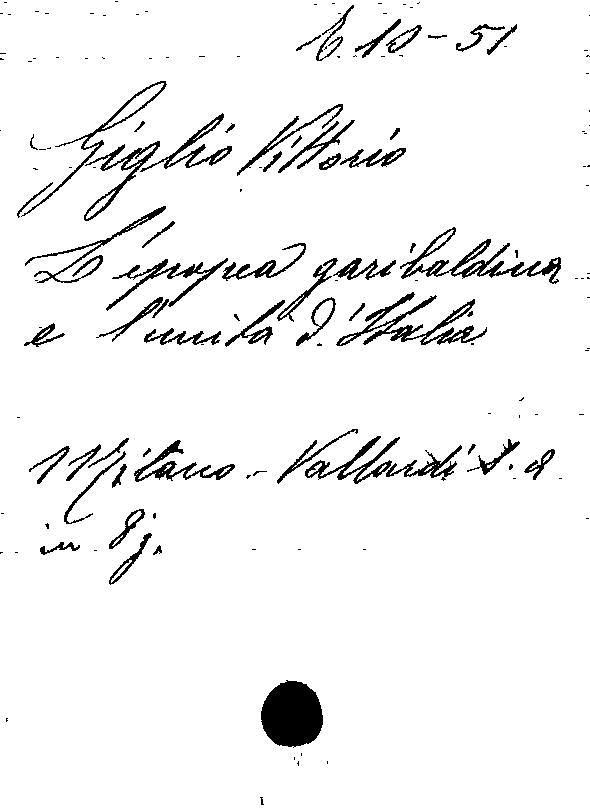 E 10-51
Giglio Vittorio
L'épopea garibaldina
e l'unità d'Italia
Milano - Vallardi S. d
in 8